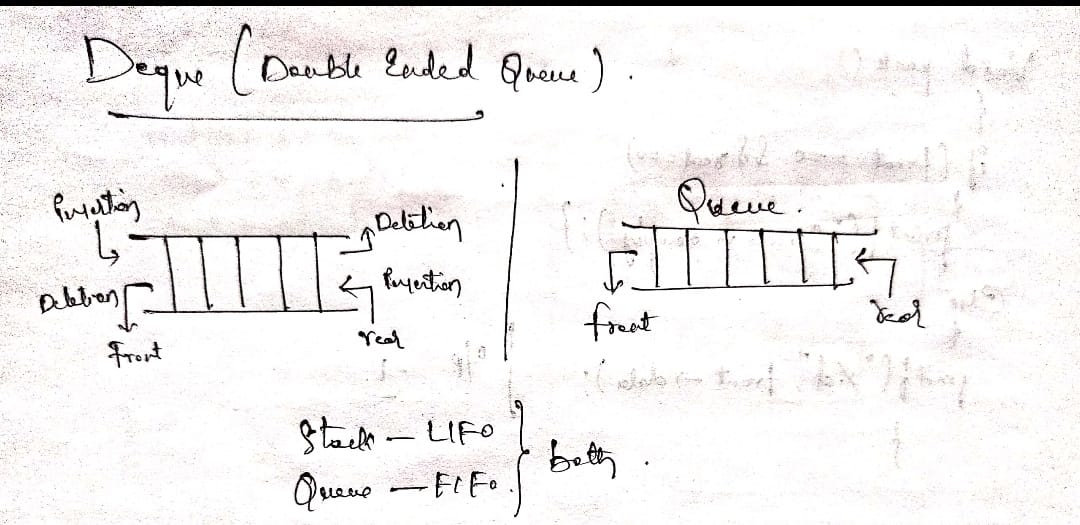 Deque (Double Ended Queue).
Insertion
Deletion
Deletion
Insertion
Front
rear
Queue.
front
rear
Stack - LIFO
Queue - FIFO.
both.